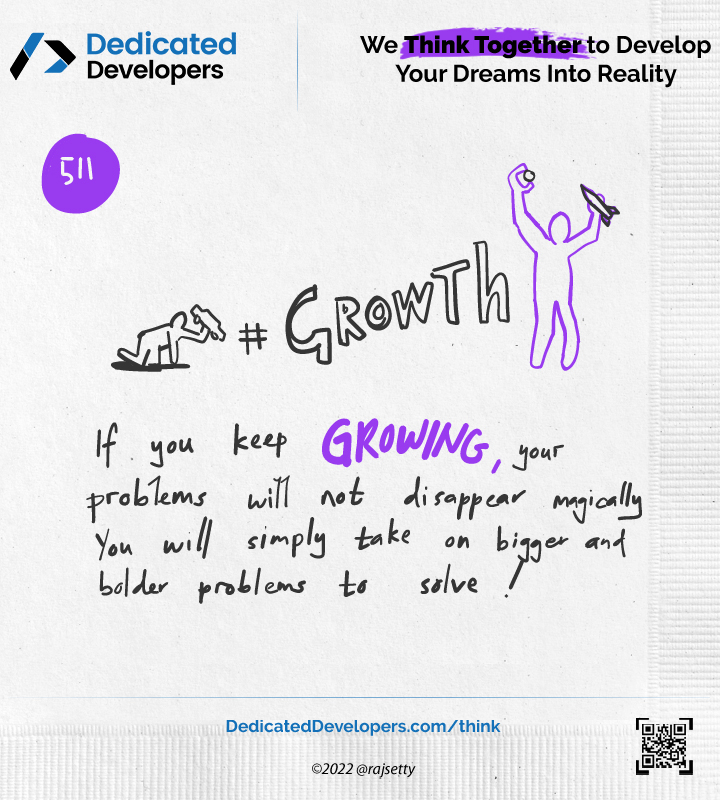 Dedicated
Developers
We Think Together to Develop
Your Dreams Into Reality
511
# GROWTh
If you keep GROWING, your
problems will not disappear magically
You will simply take on bigger and
bolder problems to solve !
DedicatedDevelopers.com/think
©2022 @rajsetty